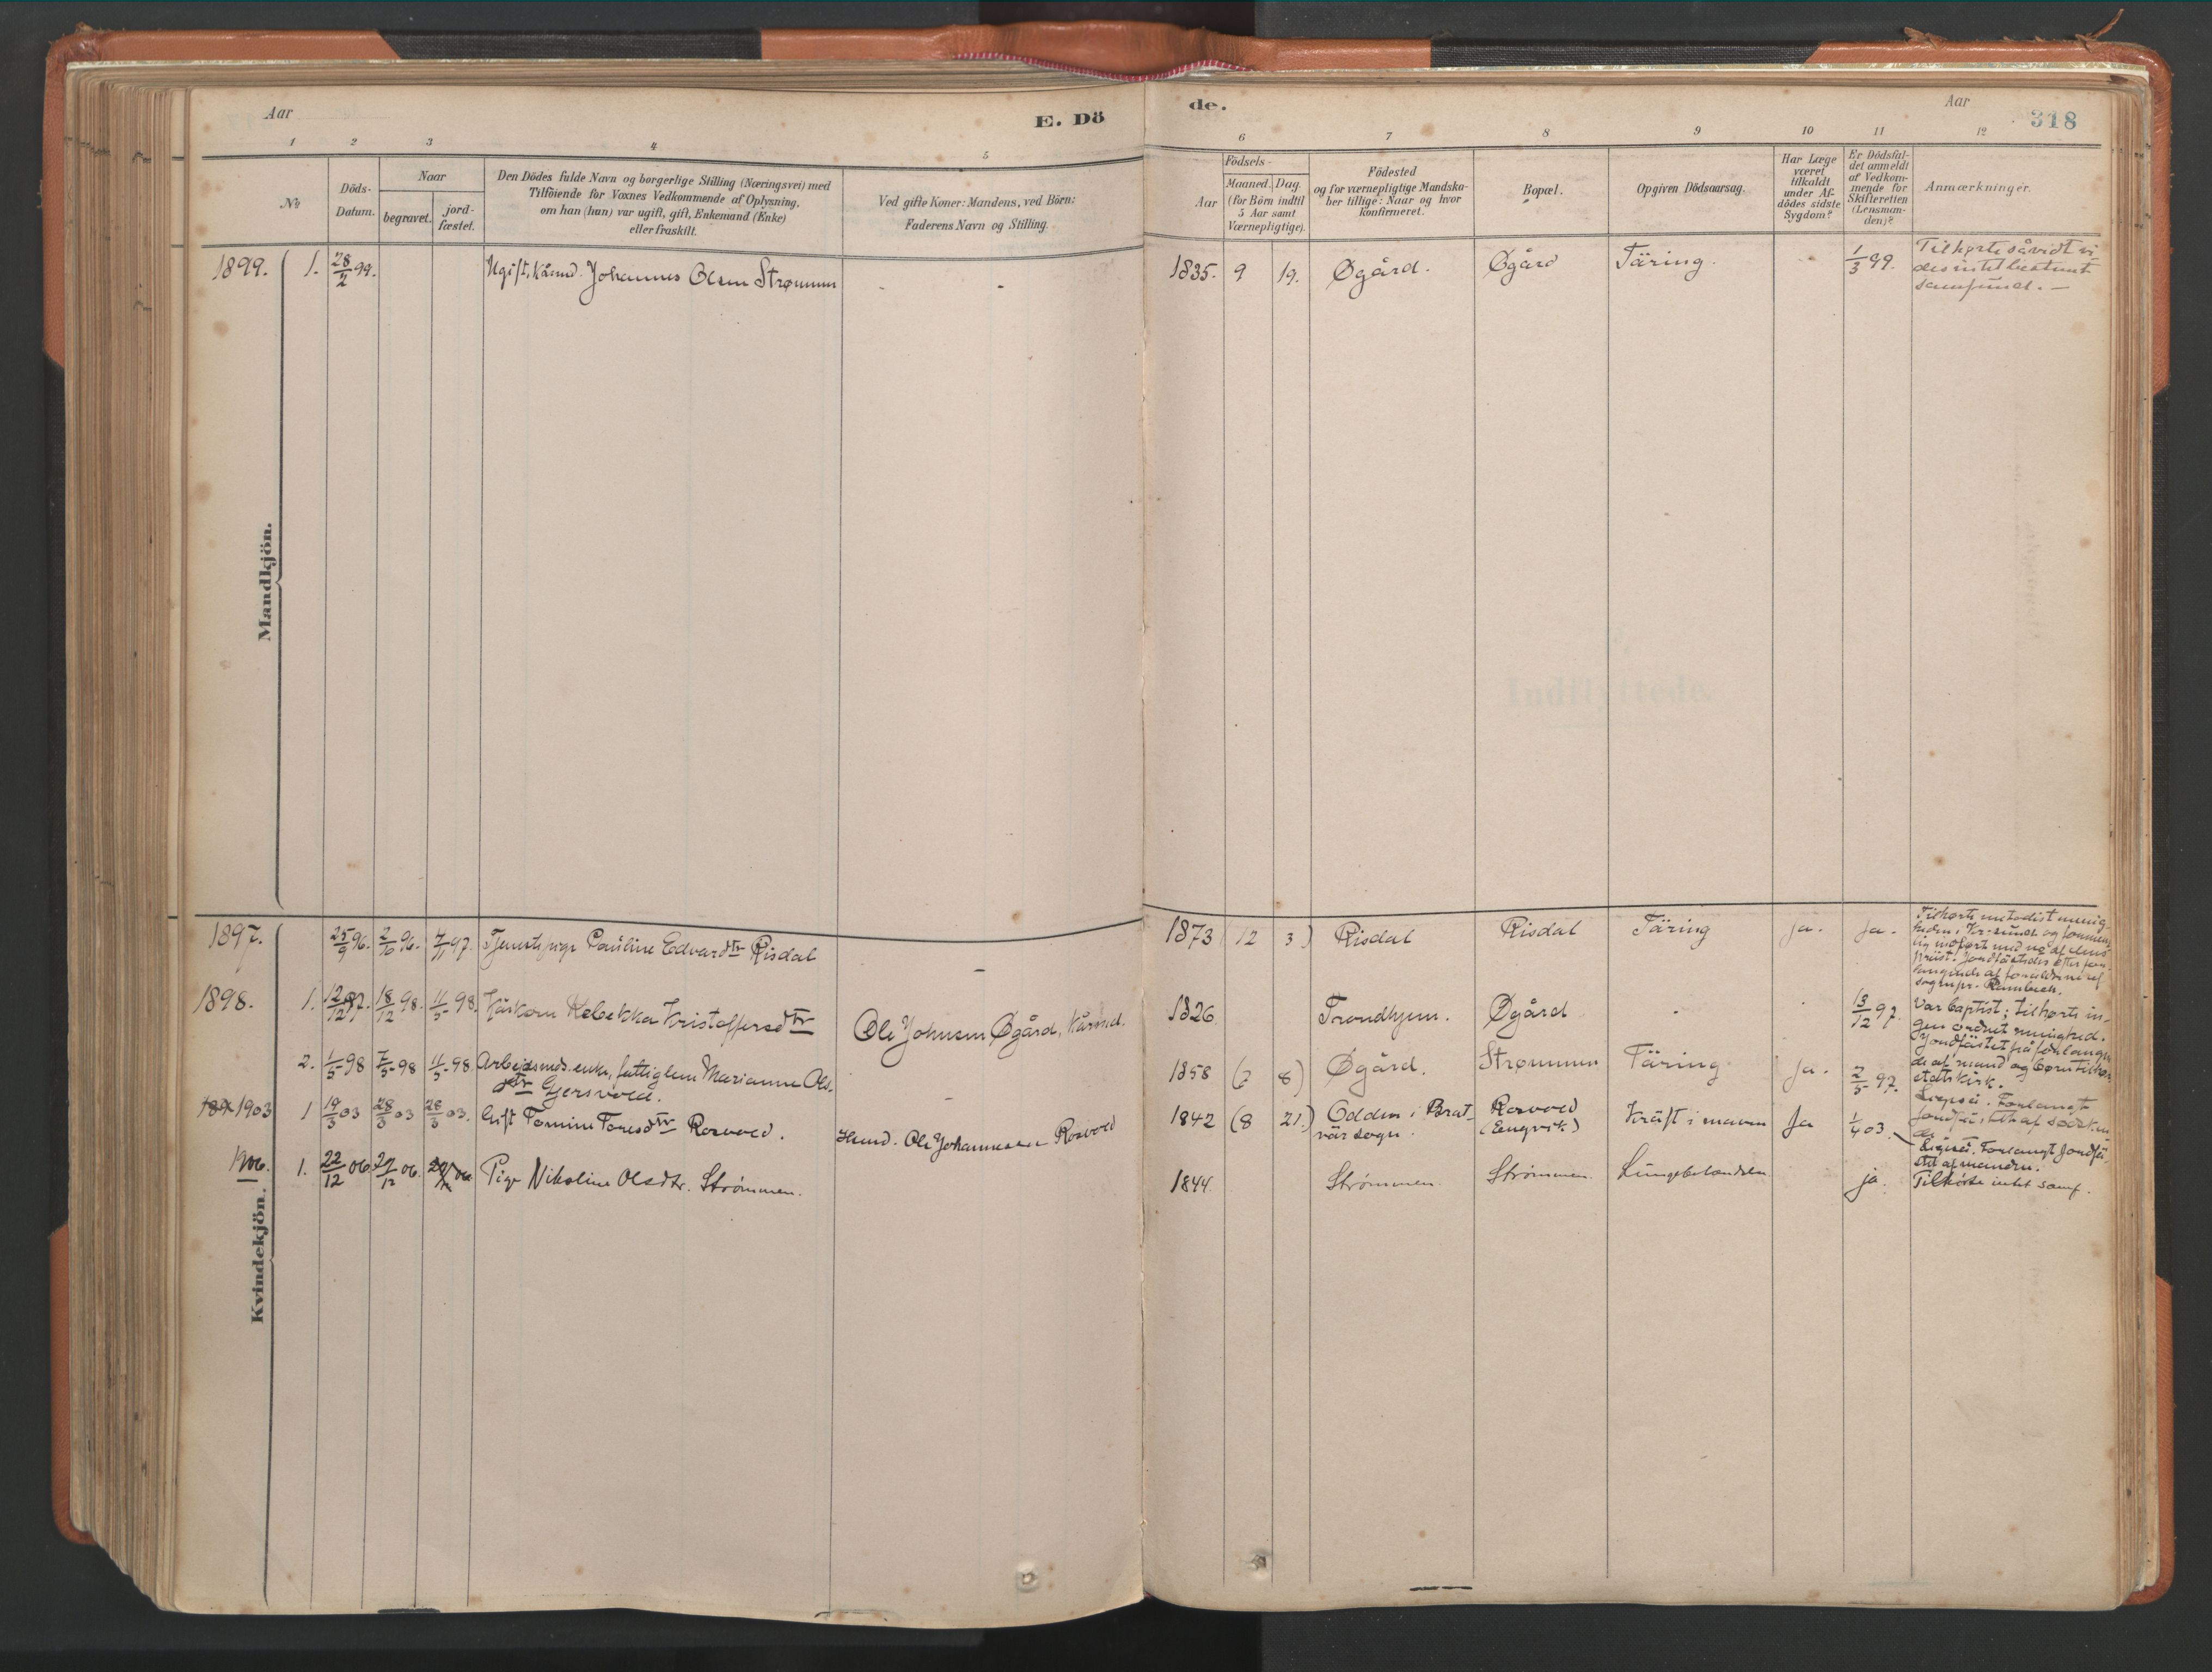 Aar
E. Dö
de.
Aar
318
1 2 3 4 5 6 7 8 9 10 11 12
№
Döds-
Datum.
Naar
begravet.
jord-
fæstet.
Den Dödes fulde Navn og borgerlige Stilling (Næringsvei) med
Tilföiende for Voxnes Vedkommende af Oplysning,
om han (hun) var ugift, gift, Enkemand (Enke)
eller fraskilt.
Ved gifte Koner: Mandens, ved Börn:
Faderens Navn og Stilling.
Födsels-
Aar
Maaned. Dag.
(for Börn indtil
5 Aar samt
Værnepligtige).
Födested
og for værnepligtige Mandska-
ber tillige: Naar og hvor
konfirmeret.
Bopæl.
Opgiven Dödsaarsag.
Har Læge
været
tilkaldt
under Af-
dödes sidste
Sygdom?
Er Dödsfal-
det anmeldt
af Vedkom-
mende for
Skifteretten
(Lensman-
den)?
Anmærkninger.
Mandkjön.
1899. 1. 28/2 99. Ugift, kårmd. Johannes Olsen Strømmen - - 1835. 9 19. Øgård. Øgård Täring. - 1/3 99. Tilhørte såvidt vi-
des intet bestemt
samfund. —
Indflyttede
Kvindekjön.
1897. 25/9 96. 2/10 96. 7/1 97. Tjenestepige Pauline Edvardtr Risdal - 1873 (12 3) Risdal Risdal Täring Ja. Ja. Tilhørte metodistmenig-
heden i Kr-sund og
præst. Jordfästedes efter for-
langende af forældrene
sognepr.
1898. 1. 12/12 97. 18/12 98. 11/5 98. Kårkone Rebekka Kristoffersdtr Ole Johnsen Øgård, kårmd. 1826 Trondhjem. Øgård - . 13/12 97. Var baptist; tilhørte in-
gen ordnet menighed.
Jordfästet på forlangen-
de af mand og børn tilhør.
statskirk.
2. 1/5 98 7/5 98 11/5 98 Arbejdsmds. enke, fattiglem Marianne Ols-
dtr Gjersvold. - 1858 (2 8) Øgård. Strømmen Täring Ja. 2/5 97. Forlangt
jordfästet af
1903 1 19/3 03 28/3 03 28/3 03. Gift Tomine Toresdtr Rosvold. Husmd. Ole Johannessen Rosvold 1842 (8 21.) Odden i Brat-
vär sogn. Rosvold
(Engvik) Kräft i maven Ja 1/4 03. Forlangt jordfä-
stet af manden.
1906. 1. 22/12 06 29/12 06 Pige Nikoline Olsdtr. Strømmen. 1844 Strømmen. Strømmen. Lungebetændelse ja. Tilhørte intet samf.